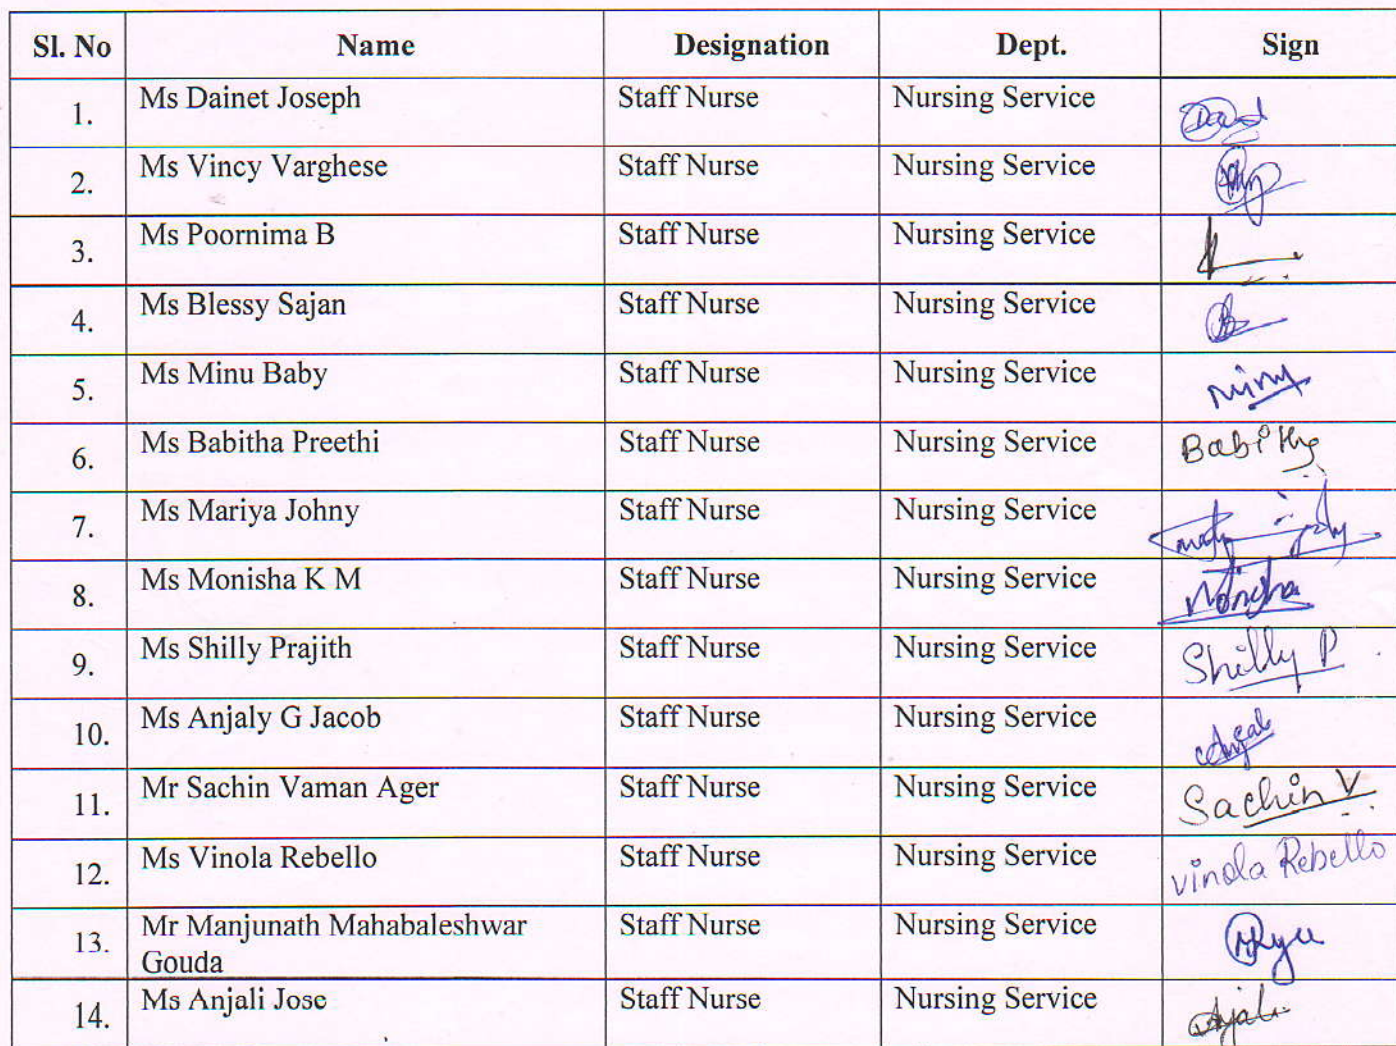 Sl. No Name Designation Dept. Sign
1. Ms Dainet Joseph Staff Nurse Nursing Service
2. Ms Vincy Varghese Staff Nurse Nursing Service
3. Ms Poornima B Staff Nurse Nursing Service
4. Ms Blessy Sajan Staff Nurse Nursing Service
5. Ms Minu Baby Staff Nurse Nursing Service
6. Ms Babitha Preethi Staff Nurse Nursing Service Babitha
7. Ms Mariya Johny Staff Nurse Nursing Service
8. Ms Monisha K M Staff Nurse Nursing Service Monisha
9. Ms Shilly Prajith Staff Nurse Nursing Service Shilly P
10. Ms Anjaly G Jacob Staff Nurse Nursing Service
11. Mr Sachin Vaman Ager Staff Nurse Nursing Service Sachin V
12. Ms Vinola Rebello Staff Nurse Nursing Service Vinola Rebello
13. Mr Manjunath Mahabaleshwar Staff Nurse Nursing Service
Gouda
14. Ms Anjali Jose Staff Nurse Nursing Service